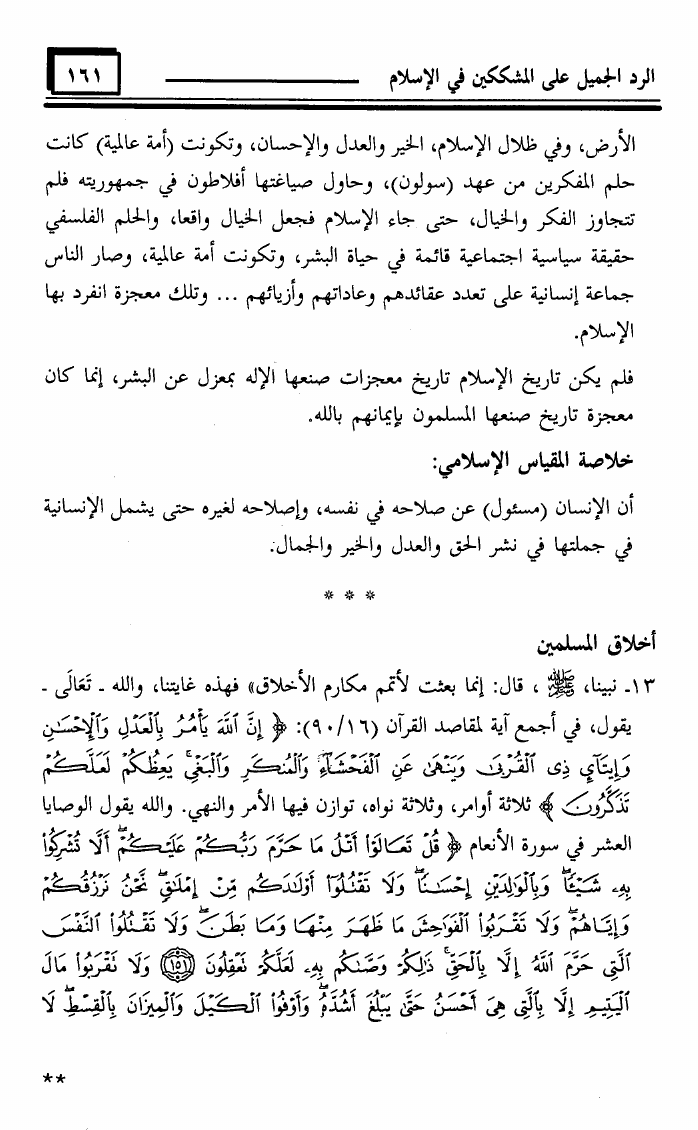 الرد الجميل على المشككين في الإسلام ١٦١
الأرض، وفي ظلال الإسلام، الخير والعدل والإحسان، وتكونت (أمة عالمية) كانت
حلم المفكرين من عهد (سولون)، وحاول صياغتها أفلاطون في جمهوريته فلم
تتجاوز الفكر والخيال، حتى جاء الإسلام فجعل الخيال واقعا، والحلم الفلسفي
حقيقة سياسية اجتماعية قائمة في حياة البشر، وتكونت أمة عالمية، وصار الناس
جماعة إنسانية على تعدد عقائدهم وعاداتهم وأزيائهم ... وتلك معجزة انفرد بها
الإسلام.
فلم يكن تاريخ الإسلام تاريخ معجزات صنعها الإله بمعزل عن البشر، إنما كان
معجزة تاريخ صنعها المسلمون بإيمانهم بالله.
خلاصة المقياس الإسلامي:
أن الإنسان (مسئول) عن صلاحه في نفسه، وإصلاحه لغيره حتى يشمل الإنسانية
في جملتها في نشر الحق والعدل والخير والجمال.
* * *
أخلاق المسلمين
١٣ـ نبينا، ﷺ ، قال: إنما بعثت لأتمم مكارم الأخلاق» فهذه غايتنا، والله ـ تَعَالَى ـ
يقول، في أجمع آية لمقاصد القرآن (٩٠/١٦): ﴿ إِنَّ ٱللَّهَ يَأْمُرُ بِٱلْعَدْلِ وَٱلْإِحْسَٰنِ
وَإِيتَآيِٕ ذِى ٱلْقُرْبَىٰ وَيَنْهَىٰ عَنِ ٱلْفَحْشَآءِ وَٱلْمُنكَرِ وَٱلْبَغْىِ ۚ يَعِظُكُمْ لَعَلَّكُمْ
تَذَكَّرُونَ ﴾ ثلاثة أوامر، وثلاثة نواه، توازن فيها الأمر والنهي. والله يقول الوصايا
العشر في سورة الأنعام ﴿ قُلْ تَعَالَوْا۟ أَتْلُ مَا حَرَّمَ رَبُّكُمْ عَلَيْكُمْ ۖ أَلَّا تُشْرِكُوا۟
بِهِۦ شَيْـًٔا ۖ وَبِٱلْوَٰلِدَيْنِ إِحْسَٰنًا ۖ وَلَا تَقْتُلُوٓا۟ أَوْلَٰدَكُم مِّنْ إِمْلَٰقٍ ۖ نَّحْنُ نَرْزُقُكُمْ
وَإِيَّاهُمْ ۖ وَلَا تَقْرَبُوا۟ ٱلْفَوَٰحِشَ مَا ظَهَرَ مِنْهَا وَمَا بَطَنَ ۖ وَلَا تَقْتُلُوا۟ ٱلنَّفْسَ
ٱلَّتِى حَرَّمَ ٱللَّهُ إِلَّا بِٱلْحَقِّ ۚ ذَٰلِكُمْ وَصَّىٰكُم بِهِۦ لَعَلَّكُمْ تَعْقِلُونَ ﴿١٥١﴾ وَلَا تَقْرَبُوا۟ مَالَ
ٱلْيَتِيمِ إِلَّا بِٱلَّتِى هِىَ أَحْسَنُ حَتَّىٰ يَبْلُغَ أَشُدَّهُۥ ۖ وَأَوْفُوا۟ ٱلْكَيْلَ وَٱلْمِيزَانَ بِٱلْقِسْطِ ۖ لَا
**